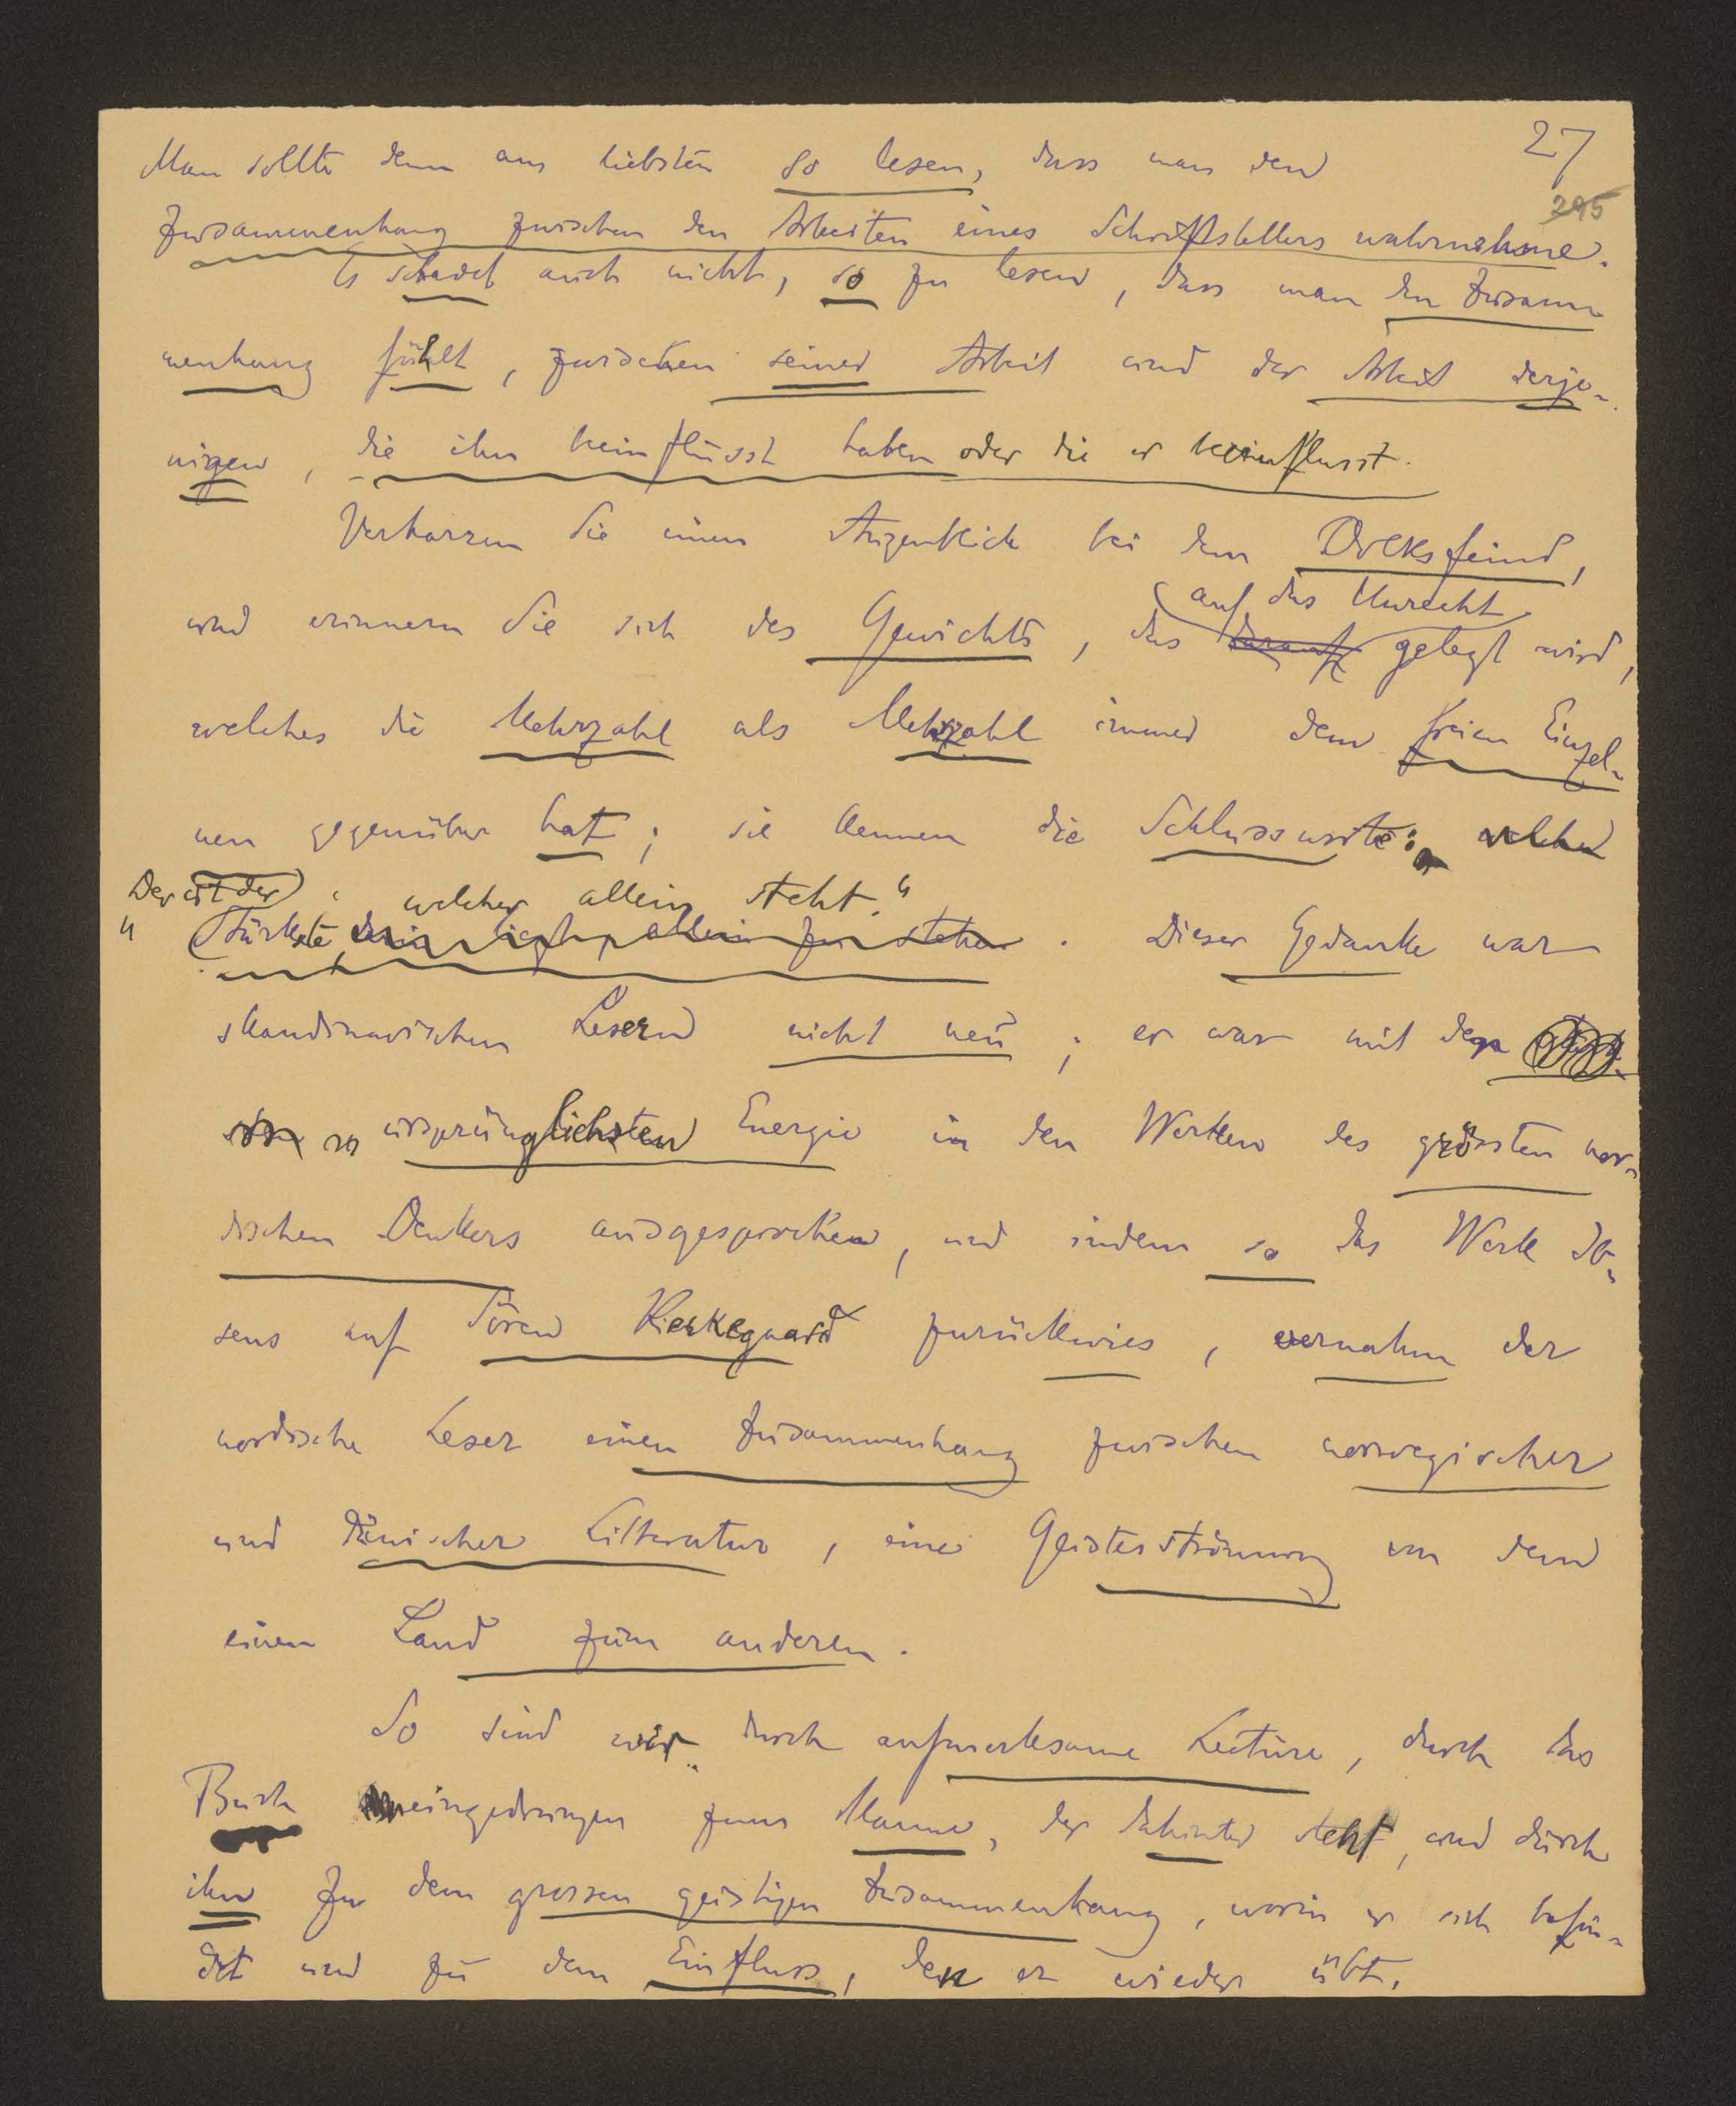 27
295
Man sollte denn am liebsten so lesen, dass man den
Zusammenhang zwischen den Arbeiten eines Schriftstellers wahrnehme.
Es schadet auch nicht, so zu lesen, dass man den Zusam-
menhang fühlt, zwischen seiner Arbeit und der Arbeit derje-
nigen, die ihn beinflusst haben oder die er beeinflusst.
Verharren Sie einen Augenblick bei dem Volksfeind,
auf das Unrecht
und erinnern Sie sich des Gewichts, das darauf gelegt wird,
welches die Mehrzahl als Mehrzahl immer dem freien Einzel-
nen gegenüber hat; sie kennen die Schlussworte: welcher
Der ist der welcher allein steht."
" Stärkste allein zu stehen. Dieser Gedanke war
skandinavischen Lesern nicht neu; er war mit der
ursprünglichsten Energie in den Werken des grössten nor-
dischen Denkers ausgesprochen, und indem so das Werk Ib-
sens auf Sören Kierkegaard zurückwies, vernahm der
nordische Leser einen Zusammenhang zwischen norwegischer
und dänischer Litteratur, eine Geistesströmung von dem
einen Land zum anderen.
So sind wir durch aufmerksame Lectüre, durch das
Buch eingedrungen zum Manne, der dahinter steht, und durch
ihn zu dem grossen geistigen Zusammenhang, worin er sich befin-
det und zu dem Einfluss, den er wieder übt.